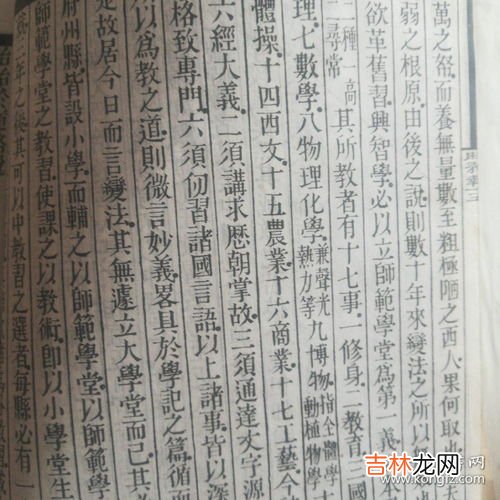 萬之帑而養無量數至粗極陋之西人果何取也
弱之根原由後之說則數十年來變法之所以
欲革舊習興智學必以立師範學堂為第一義
二種一高尋常其所教者有十七事一修身二教育三國
理七數學八物理化學兼聲光熱力等九博物指全體學動植物學
體操十四西文十五農業十六商業十七工藝今
六經大義二須講求歷朝掌故三須通達文字源
格致專門六須仞習諸國言語以上諸事皆以深
所以為教之道則微言妙義畧具於學記之篇循而
是故居今日而言變法其無遽立大學堂而已其
府州縣皆設小學而輔之以師範學堂以師範學
師範學堂之教習使課之以教術即以小學堂生
三年之後其可以中教習之選者每縣必有一
吉林龙网